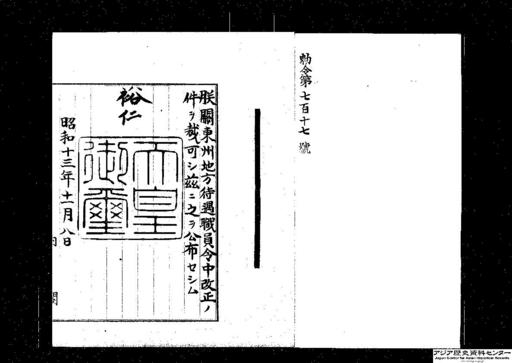 勅令第七百十七號
朕關東州地方待遇職員令中改正ノ
件ヲ裁可シ茲ニ之ヲ公布セシム
裕仁
天皇
御璽
昭和十三年十一月八日
内閣
アジア歴史資料センター
Japan Center for Asian Historical Records